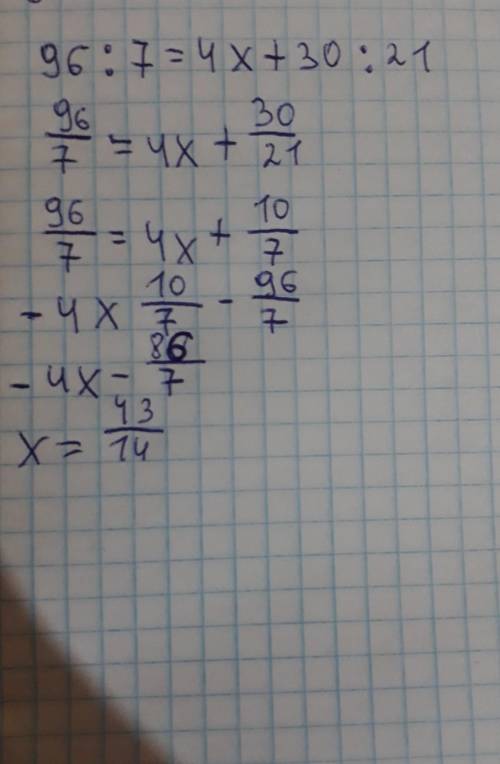 96 : 7 = 4x + 30 : 21
96/7 = 4x + 30/21
96/7 = 4x + 10/7
- 4x 10/7 - 96/7
- 4x - 86/7
x = 43/14